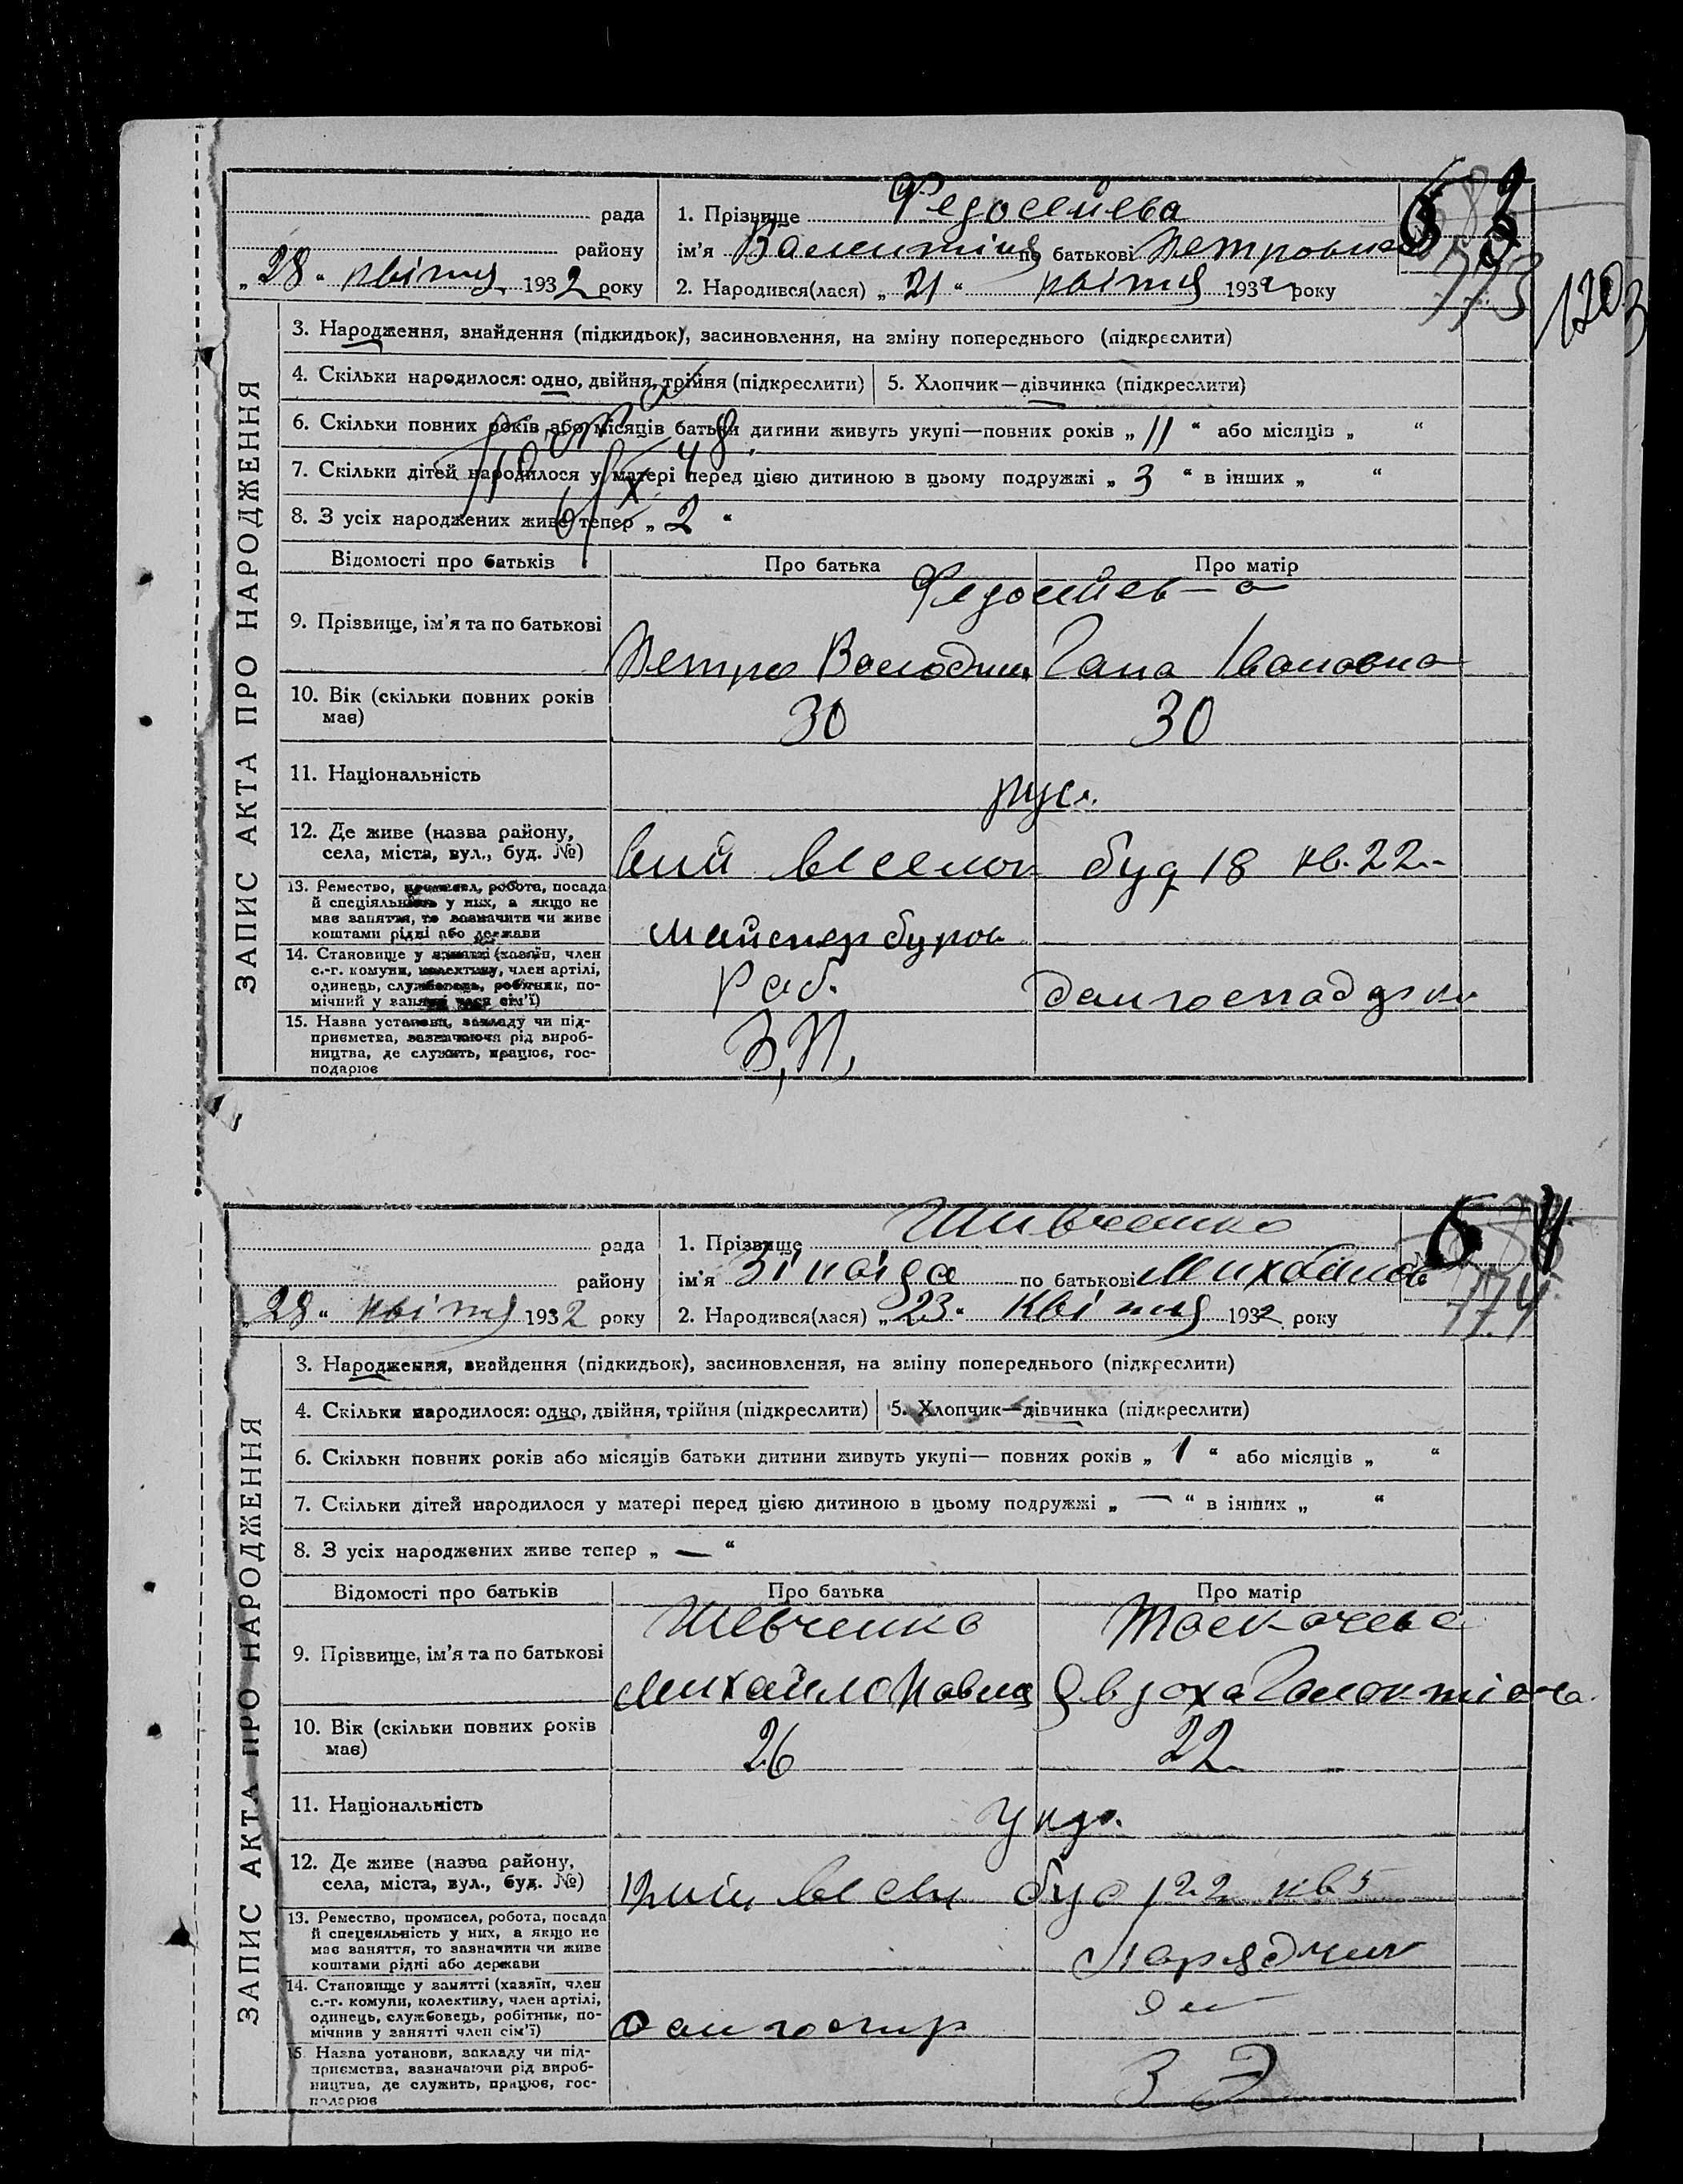 рада
району
„28“ квітня 1932 року
1. Прізвище Федосейева
ім’я Валентина по батькові Петровна
2. Народився(лася) „21“ квітня 1932 року
773
1203
ЗАПИС АКТА ПРО НАРОДЖЕННЯ
3. Народження, знайдення (підкидьок), засиновлення, на зміну попереднього (підкреслити)
4. Скільки народилося: одно, двійня, трійня (підкреслити)
5. Хлопчик—дівчинка (підкреслити)
6. Скільки повних років або місяців батьки дитини живуть укупі—повних років „11“ або місяців „ “
7. Скільки дітей народилося у матері перед цією дитиною в цьому подружжі „3“ в інших „ “
8. З усіх народжених живе тепер „2“
Відомості про батьків
Про батька
Про матір
9. Прізвище, ім’я та по батькові
Федосейев—а
Петро Володим
Гана Івановна
10. Вік (скільки повних років має)
30
30
11. Національність
рус.
12. Де живе (назва району, села, міста, вул., буд. №)
буд 18 кв. 22
13. Ремество, промисел, робота, посада
й спеціяльність у них, а якщо не
має заняття, то зазначити чи живе
коштами рідні або держави
майстер буров
14. Становище у занятті (хазяїн, член
с.-г. комуни, колективу, член артілі,
одинець, службовець, робітник, по-
мічний у занятті член сім’ї)
Раб.
15. Назва установи, закладу чи під-
приємства, зазначаючи рід вироб-
ництва, де служить, працює, гос-
подарює
З,П,
рада
району
„28“ квітня 1932 року
1. Прізвище Шевченко
ім’я Зінаіда по батькові Михайлов
2. Народився(лася) „23“ квітня 1932 року
774
ЗАПИС АКТА ПРО НАРОДЖЕННЯ
3. Народження, знайдення (підкидьок), засиновлення, на зміну попереднього (підкреслити)
4. Скільки народилося: одно, двійня, трійня (підкреслити)
5. Хлопчик—дівчинка (підкреслити)
6. Скільки повних років або місяців батьки дитини живуть укупі— повних років „1“ або місяців „ “
7. Скільки дітей народилося у матері перед цією дитиною в цьому подружжі „—“ в інших „ “
8. З усіх народжених живе тепер „—“
Відомості про батьків
Про батька
Про матір
9. Прізвище, ім’я та по батькові
Шевченко
Михайло Павлов
Явдоха
10. Вік (скільки повних років має)
26
22
11. Національність
укр.
12. Де живе (назва району, села, міста, вул., буд. №)
буд 122 кв 5
13. Ремество, промисел, робота, посада
й спецеяльність у них, а якщо не
має заняття, то зазначити чи живе
коштами рідні або держави
14. Становище у занятті (хазяїн, член
с.-г. комуни, колективу, член артілі,
одинець, службовець, робітник, по-
мічнив у занятті член сім’ї)
15. Назва установи, закладу чи під-
приємства, вазначаючи рід вироб-
ництва, де служить, працює, гос-
подарює
З Э